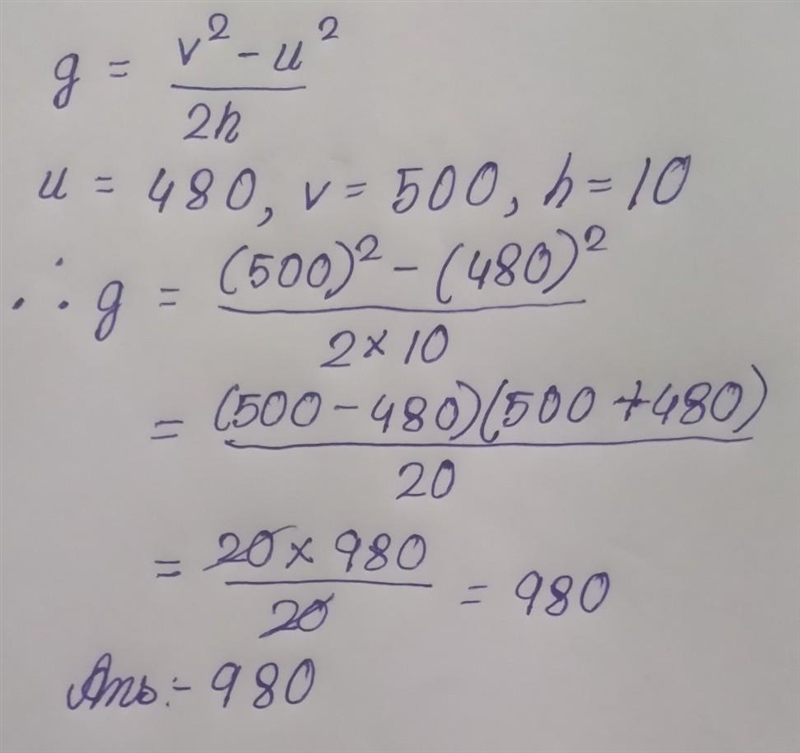 g = v² - u² / 2h
u = 480, v = 500, h = 10
∴ g = (500)² - (480)² / 2 × 10
= (500 - 480)(500 + 480) / 20
= 20 × 980 / 20 = 980
Ans :- 980